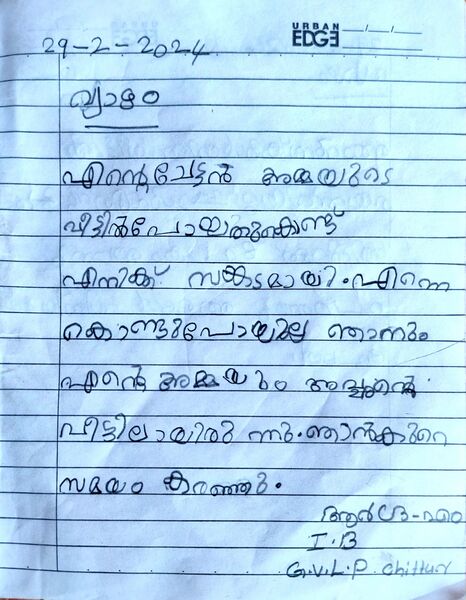 URBAN
EDGE
29-2-2024
വ്യാഴം
എന്റെ ചേട്ടൻ അമ്മയുടെ
വീട്ടിൽപോയതുകൊണ്ട്
എനിക്ക് സങ്കടമായി. എന്നെ
കൊണ്ടുപോയില്ല ഞാനും
എന്റെ അമ്മയും അച്ഛന്റെ
വീട്ടിലായിരു ന്നു. ഞാൻകുറെ
സമയം കരഞ്ഞു.
I.B
G.V.L.P. Chittur